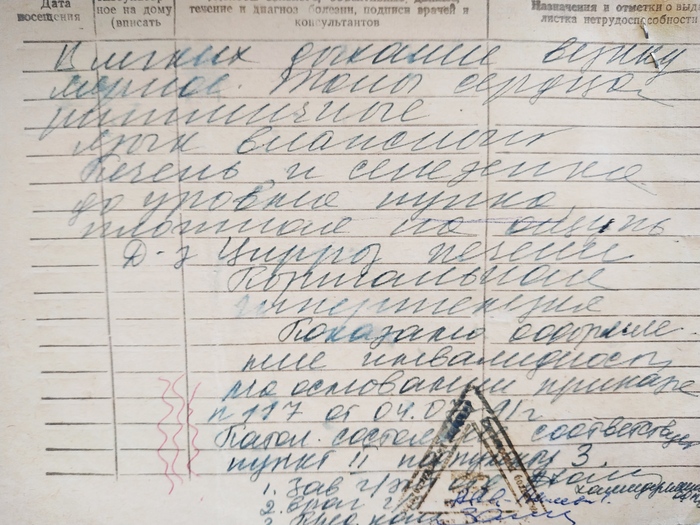 Дата
посещения
ное на дому
(вписать
течение и диагноз болезни, подписи врачей и
консультантов
Назначения и отметки о выд
листка нетрудоспособности
В легких дыхание везику
лярное. Тоны сердца
ритмичные
Язык влажный
Печень и селезенка
до уровня пупка,
плотная на ощупь
Д-з Цирроз печени
Портальная
гипертензия
Показано оформле
ние инвалидност
на основании приказа
п 117 от 04.07
Патол. состояние соответствуе
пункт II подпункт 3
1. Зав
2. врач
3.